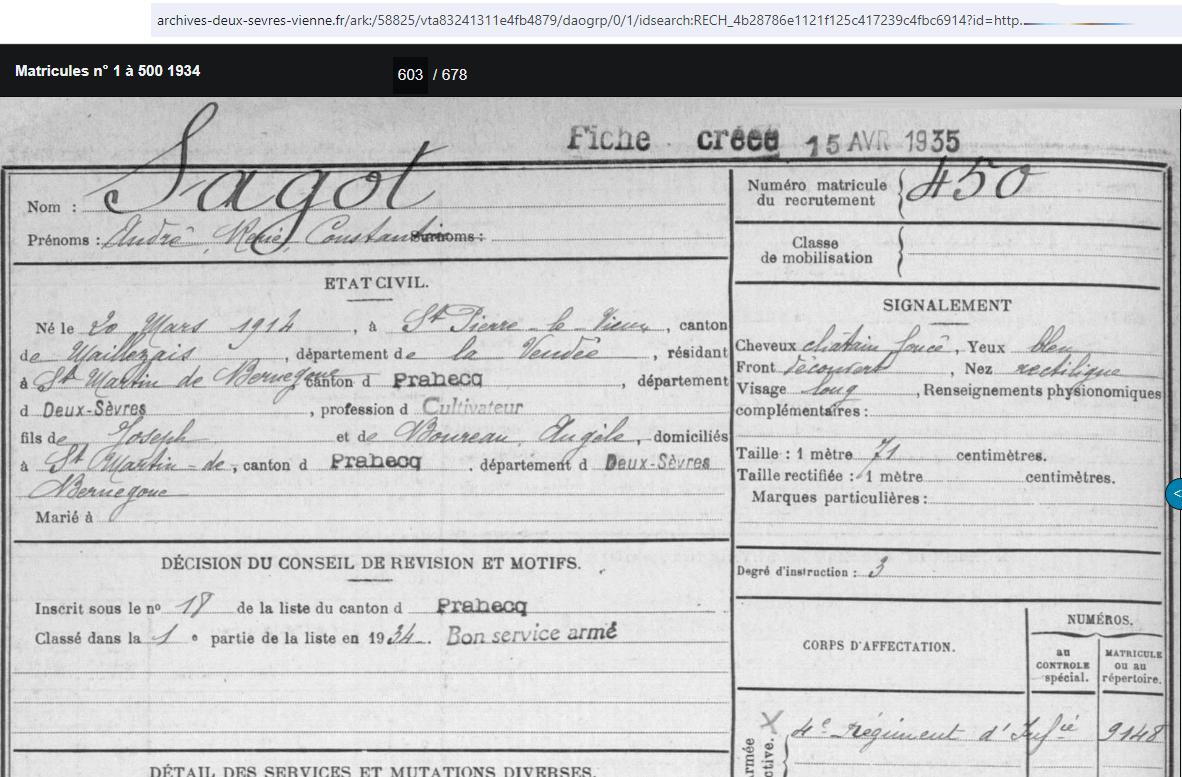 archives-deux-sevres-vienne.fr/ark:/58825/vta83241311e4fb4879/daogrp/0/1/idsearch:RECH_4b28786e1121f125c417239c4fbc6914?id=http.
Matricules n° 1 à 500 1934
603 / 678
Fiche créée 15 AVR 1935
Nom : Sagot
Prénoms : André, René, Constantin Surnoms :
Numéro matricule du recrutement 450
Classe de mobilisation
ETAT CIVIL.
Né le 20 Mars 1914, à St Pierre-le-Vieux, canton
de Maillezais, département de la Vendée, résidant
à St Martin de Bernegoue canton d Prahecq, département
d Deux-Sèvres, profession d Cultivateur
fils de Joseph et de Moureau, Angèle, domiciliés
à St Martin de, canton d Prahecq, département d Deux-Sèvres
Bernegoue
Marié à
SIGNALEMENT
Cheveux châtain foncé, Yeux bleu
Front découvert, Nez rectiligne
Visage long, Renseignements physionomiques
complémentaires :
Taille : 1 mètre 71 centimètres.
Taille rectifiée : 1 mètre centimètres.
Marques particulières :
Degré d'instruction : 3
DÉCISION DU CONSEIL DE REVISION ET MOTIFS.
Inscrit sous le n° 18 de la liste du canton d Prahecq
Classé dans la 1e partie de la liste en 1934. Bon service armé
CORPS D'AFFECTATION.
NUMÉROS.
au CONTROLE spécial.
MATRICULE ou au répertoire.
Armée active.
X 4e Régiment d'Infie 9148
DÉTAIL DES SERVICES ET MUTATIONS DIVERSES.
<